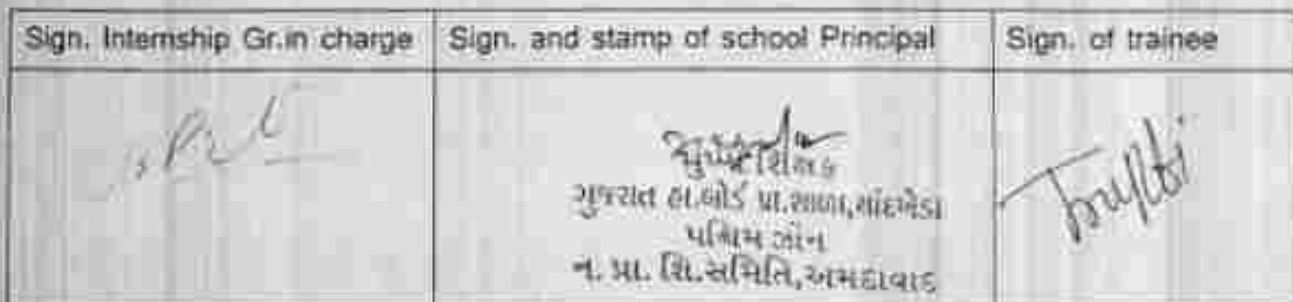 Sign. Internship Gr.in charge
Sign. and stamp of school Principal
Sign. of trainee
મુખ્ય શિક્ષક
ગુજરાત હા.બોર્ડ પ્રા.શાળા,ચાંદખેડા
પશ્ચિમ ઝોન
ન. પ્રા. શિ.સમિતિ,અમદાવાદ
Trupti